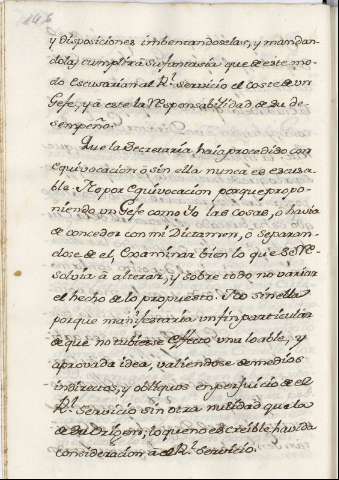 146
y disposiciones imbentandoselas, y mandan-
dola, cumplirá su fantasia que de este mo-
do Escusarian al Rl. servicio el coste de un
Gefe, y á este la Responsabilidad de su de-
sempeño.
Que la Secretaria haia procedido con
equivocacion ó sin ella nunca es escusa-
ble. No por Equivocacion porque propo-
niendo un Gefe como Yo las cosas, o havia
de conceder con mi Dictamen, o separan-
dose de el, Examinar bien lo que se Re-
solvia á alterar, y sobre todo no variar
el hecho de lo propuesto. No sin ella
porque manifestaria un fin particular
de que no tubiese Efecto una loable, y
aprovada idea, valiendose de medios
indirectos, y obliquos en perjuicio de el
Rl. Servicio sin otra nulidad que la
de su Origen, lo que no es creible havida
consideracion á el Rl. Servicio.